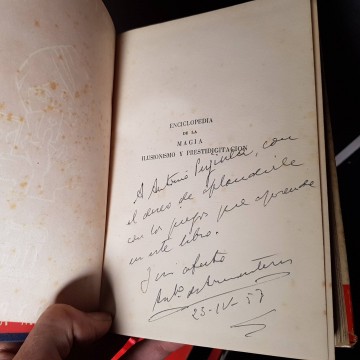 ENCICLOPEDIA
DE LA
MAGIA
ILUSIONISMO Y PRESTIDIGITACION
A Antonio con
el deseo de aplaudirle
con los juegos que aprenda
en este libro.
Y mi afecto
Antº
23-IV-57